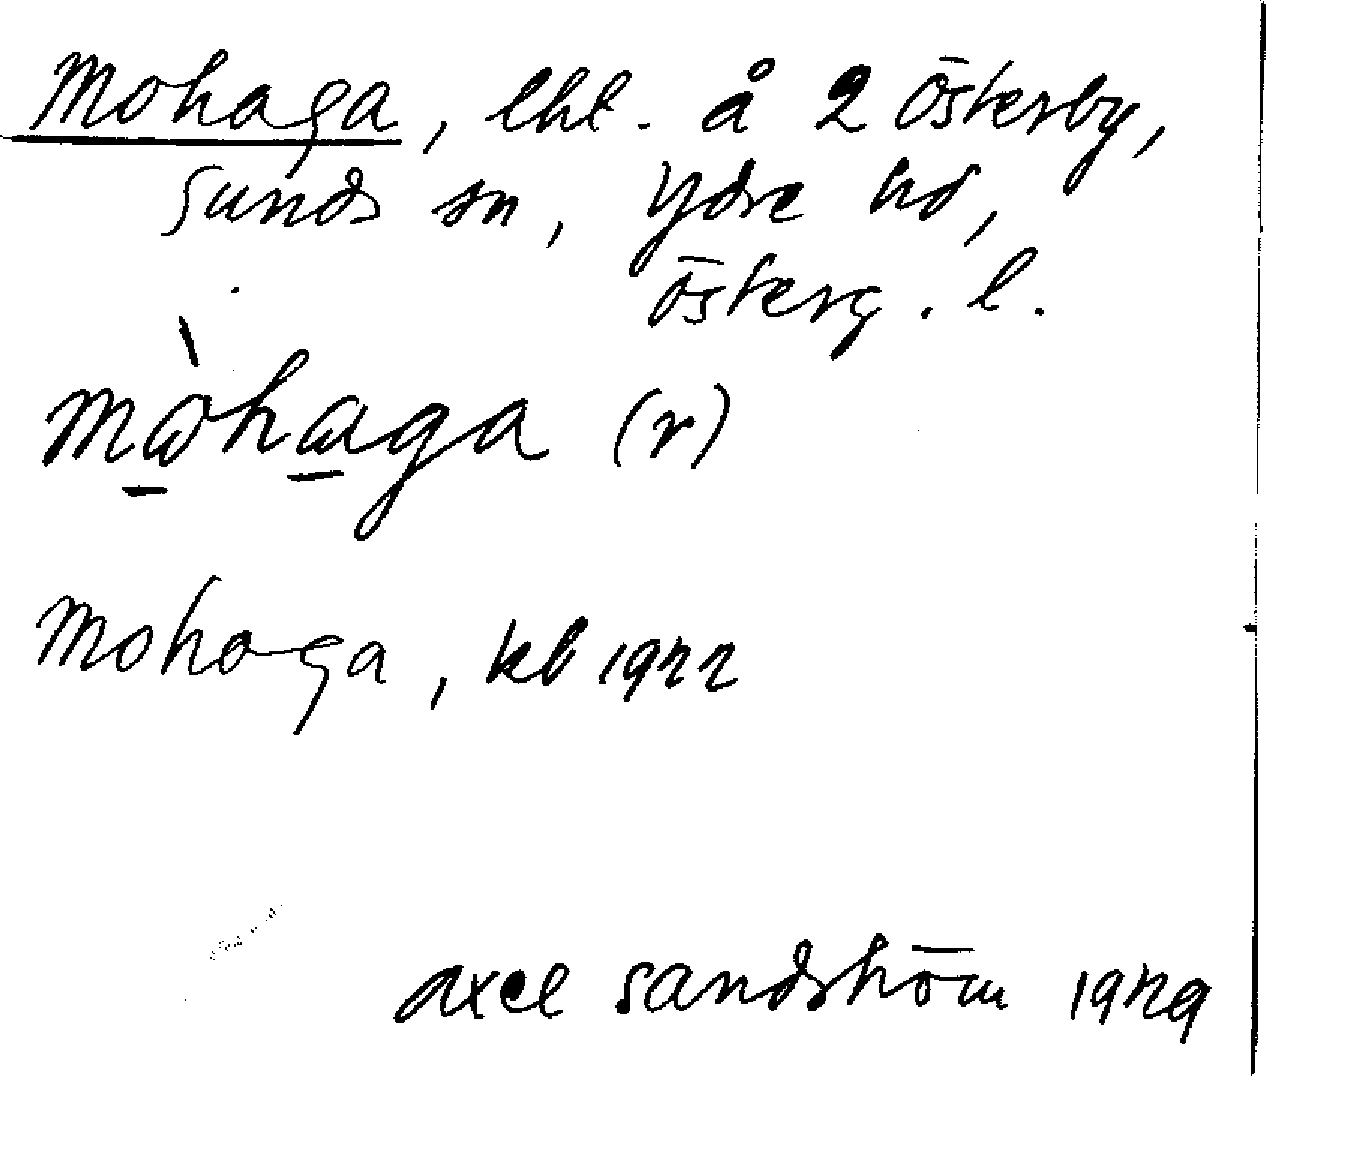 Mohaga, lht. å 2 Österby,
Sunds sn, Ydre hd,
Österg. l.
mɷ̀haga (r)
Mohaga, kb 1922
Axel Sandström 1929